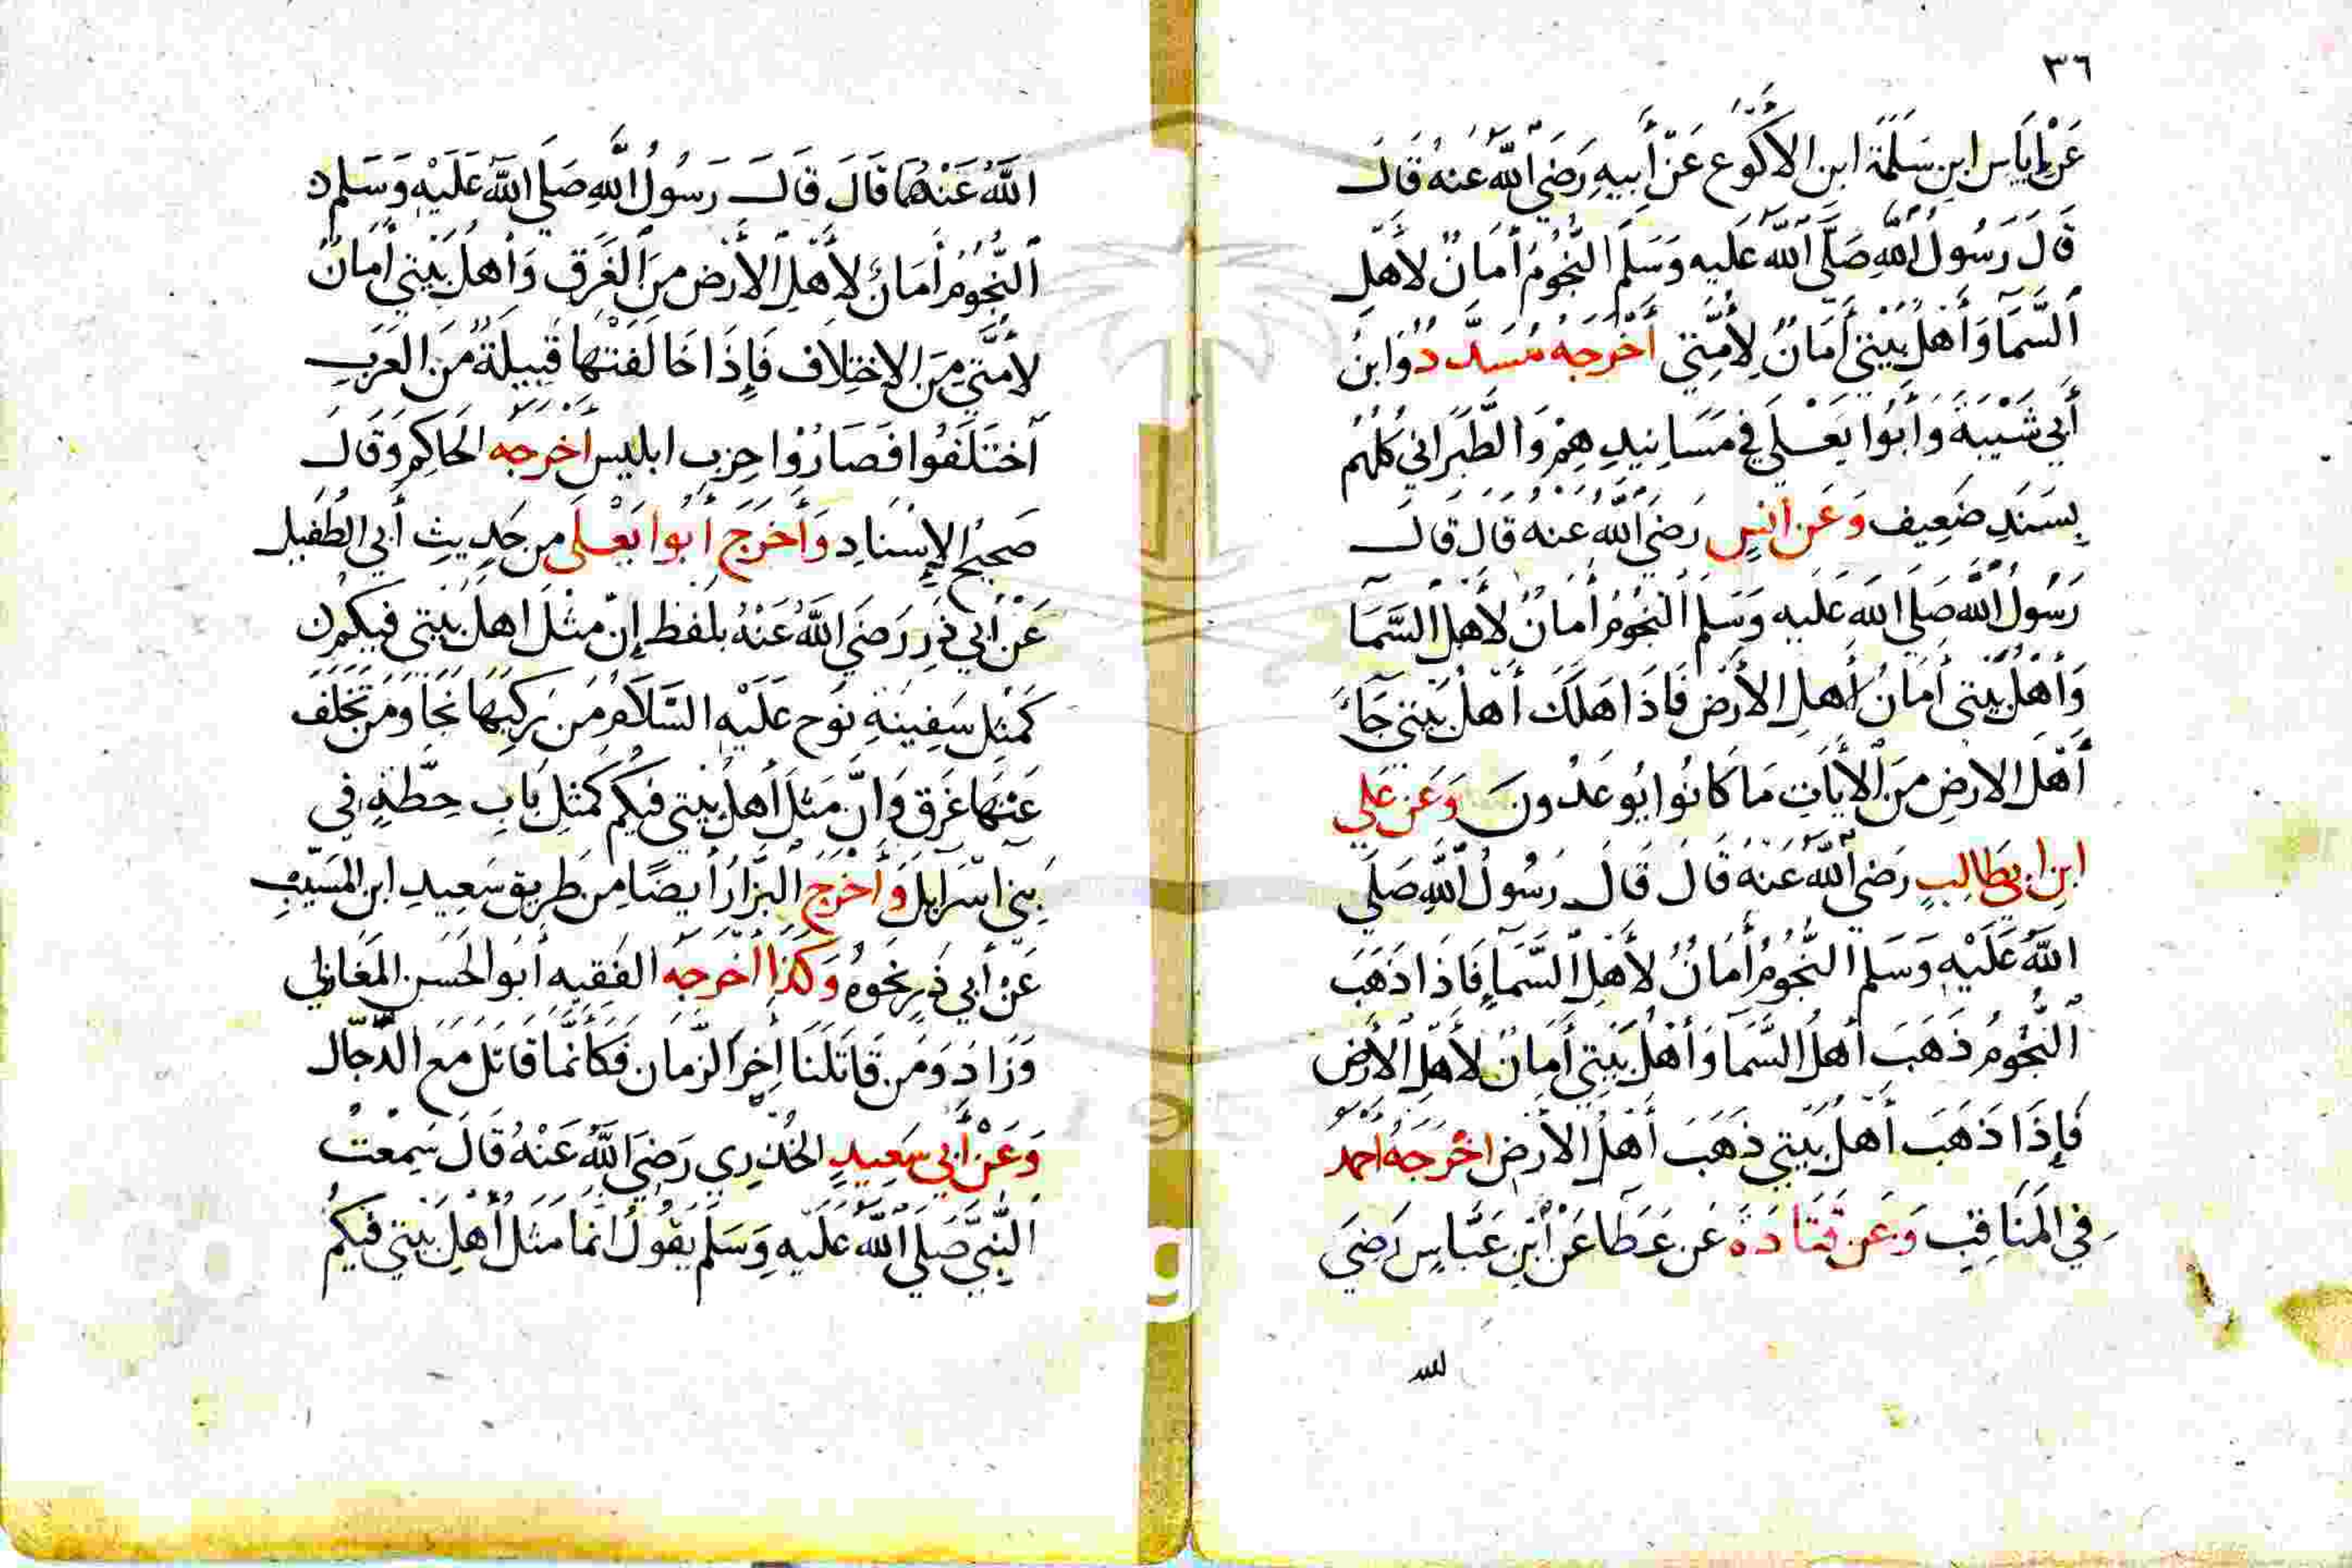 ٣٦
عَنْ إِيَاسِ ابنِ سَلَمَةَ ابن الأكْوَع عَنْ أَبِيهِ رَضَيَ اللهُ عَنهُ قَالَ
قَالَ رَسُولُ اللهِ صَلَّى اللهُ عَلَيه وَسَلَّمَ النُّجُومُ أَمَانٌ لأَهلِ
السَّمَا وَأَهْلُ بَيْتِي أَمَانٌ لِأُمَّتِي أَخْرَجَهُ مُسَدَّدُ وَابنُ
أَبِي شَيْبَةَ وَأَبُوا يَعْلَى فِي مَسَانِيدِهِمْ وَالطَّبَرَانِي كُلُّهُم
بِسَنَدٍ ضَعِيف وَعَن أَنَسٍ رَضَيَ اللهُ عَنهُ قَالَ قَالَ
رَسُولُ اللهِ صَلَى اللهُ عَلَيه وَسَلَمَ النُجُومُ أَمَانٌ لأَهْلِ السَّمَآ
وَأَهْلُ بَيْتِى أَمَانُ أَهلِ الأَرْضِ فَاذَا هَلَكَ أَهْلُ بَيْتِي جَآءَ
أَهْلَ الارضِ مِنَ الأيَاتِ مَا كَانُوا يُوعَدُونَ وَعَن عَلِي
ابنِ ابِي طَالِبٍ رَضَيَ اللهُ عَنهُ قَالَ قَالَ رَسُولُ اللهِ صَلَى
اللهُ عَلَيْهِ وَسَلم النُّجُومُ أَمَانٌ لأَهْلِ السَّمَآءِ فَاذَا ذَهَبَ
النُّجُومُ ذَهَبَ أَهلُ السَّمَآ وَأَهْلُ بَيْتِي أَمَانٌ لأَهلِ الأَرْض
فَإِذَا ذَهَبَ أَهْلُ بَيْتِي ذَهَبَ أَهْلُ الأَرْض اخْرَجَهُ احمد
فِي المَنَاقِبِ وَعَن قَتَادَةَ عَن عَطَا عَنْ أبنِ عَبَّاسٍ رَضِيَ
لله
اللهُ عَنْهُمَا قَالَ قَالَ رَسُولُ اللهِ صَلَى اللهُ عَلَيْهِ وَسَلم
النُّجُومُ أَمَانٌ لِأَهْلِ الأَرْض مِنَ الغَرَق وَأَهلُ بَيْتِي أَمَانٌ
لأُمَّتِي مِنَ الاِخْتِلَاف فَإِذَا خَالَفَتْهَا قَبِيلَةٌ مِنَ العَرَبِ
اخْتَلَفُوا فَصَارُوْا حِزب ابليس أَخْرَجَه الحَاكِم وَقَالَ
صَحِيحُ الإِسْنَادِ وَأَخرَجَ أَبُوا يَعْلَى مِن حَدِيثِ أَبِي الطُفَيل
عَنْ أَبِي ذَرٍ رَضَيَ اللهُ عَنْهُ بلَفظ إِنَّ مَثْلَ اهلُ بَيْتِى فِيكُم
كَمَثَلِ سَفِينَةِ نُوح عَلَيْهِ السَّلَامُ مَن رَكِبَهَا نَجَا وَمَن تَخَلَّفَ
عَنْهَا غَرَق وَانَّ مَثَلَ أَهلُ بَيْتِي فِيكُم كَمَثَلِ بَابِ حِطَّةٍ فِي
بَنِي اسْرَايِلَ وَأَخْرَجَ البَزَّارُ أَيضًا مِن طَرِيق سَعِيدِ ابن المَسَيّبِ
عَنْ أَبِي ذَرٍ نَحْوهُ وَكَذَا أَخرَجَهُ الفَقِيه أَبُوا الحَسَن المَغَازِلِي
وَزَادَ وَمَن قَاتَلَنَا أخِرَ الزَمَان فَكَأَنَّمَا قَاتَل مَعَ الدَّجَّال
وَعَنْ أَبِي سَعِيدٍ الخُدرِي رَضَيَ اللهُ عَنْهُ قَالَ سَمِعْتُ
النَّبِيَّ صَلَى اللهُ عَلَيه وَسَلَّمَ يَقُولُ انَّمَا مَثَلُ أَهْلِ بَيْتِي فِيكُمْ